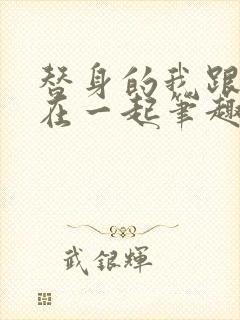 替身的我跟
在一起笔趣
武银辉